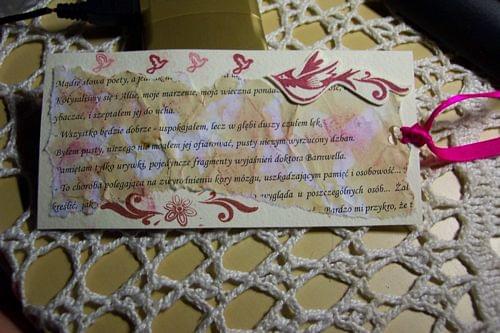 Mądre słowa poety, a jed
Kołysaliśmy się i Allie, moje marzenie, moja wieczna ponad
ość,
ybaczać, i szeptałem jej do ucha.
- Wszystko będzie dobrze - uspokajałem, lecz w głębi duszy czułem lęk.
Byłem pusty, niczego nie mogłem jej ofiarować, pusty niczym wyrzucony dzban.
pamiętam tylko urywki, pojedyncze fragmenty wyjaśnień doktora Barnwella.
- To choroba polegająca na zwyrodnieniu kory mózgu, uszkadzającym pamięć i osobowość...
wygląda u poszczególnych osób... Żal
kreślić, jak
Bardzo mi przykro, że t